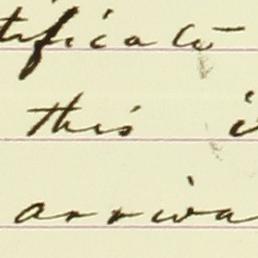 tificate
this i
arriva